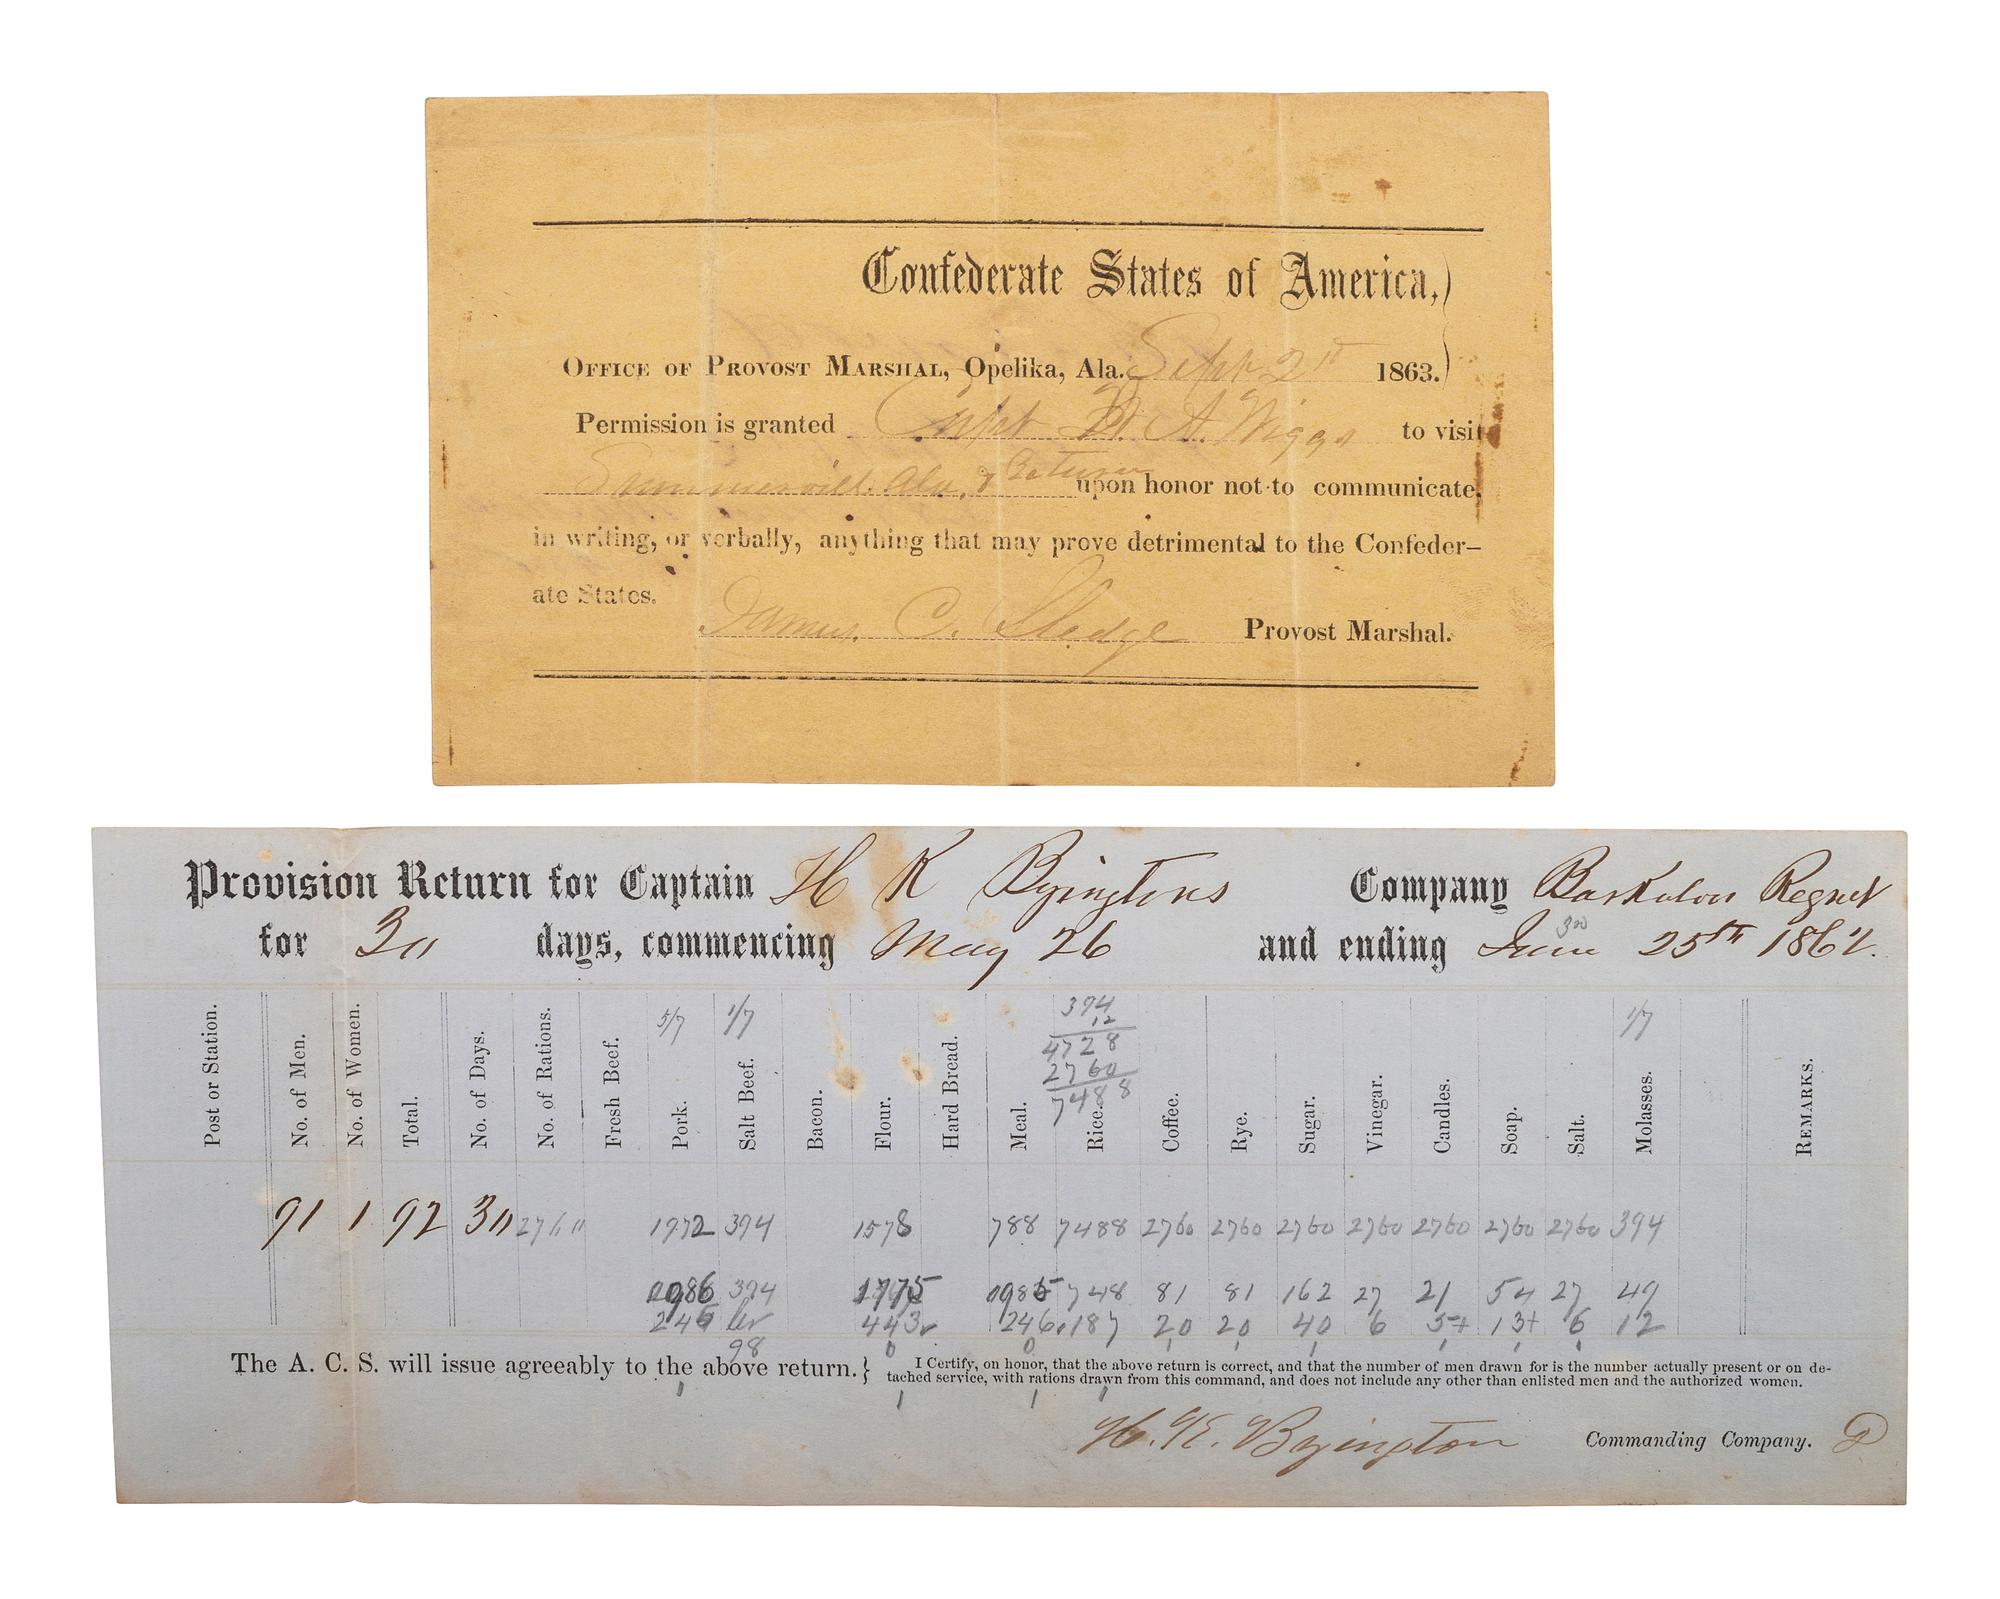 Confederate States of America,
OFFICE OF PROVOST MARSHAL, Opelika, Ala. Sept 2d 1863.
Permission is granted Capt A. Wiggs to visit
Summervill. Ala, & Return upon honor not to communicate,
in writing, or verbally, anything that may prove detrimental to the Confeder-
ate States.
James. C. Sledge Provost Marshal.
Provision Return for Captain H K Byingtons Company Regmet
for 30 days, commencing May 26 and ending June 25th 1862.
5/7 1/7 394 1/7
12
4728
2760
7488
Post or Station. No. of Men. No. of Women. Total. No. of Days. No. of Rations. Fresh Beef. Pork. Salt Beef. Bacon. Flour. Hard Bread. Meal. Rice. Coffee. Rye. Sugar. Vinegar. Candles. Soap. Salt. Molasses. REMARKS.
91 1 92 30 2760 1972 394 1578 788 7488 2760 2760 2760 2760 2760 2760 2760 394
394 1775 748 81 81 162 27 21 54 27 49
246 443 246 187 20 20 40 6 5+ 13+ 6 12
98
The A. C. S. will issue agreeably to the above return.} I Certify, on honor, that the above return is correct, and that the number of men drawn for is the number actually present or on de-
tached service, with rations drawn from this command, and does not include any other than enlisted men and the authorized women.
H. K. Byington Commanding Company.